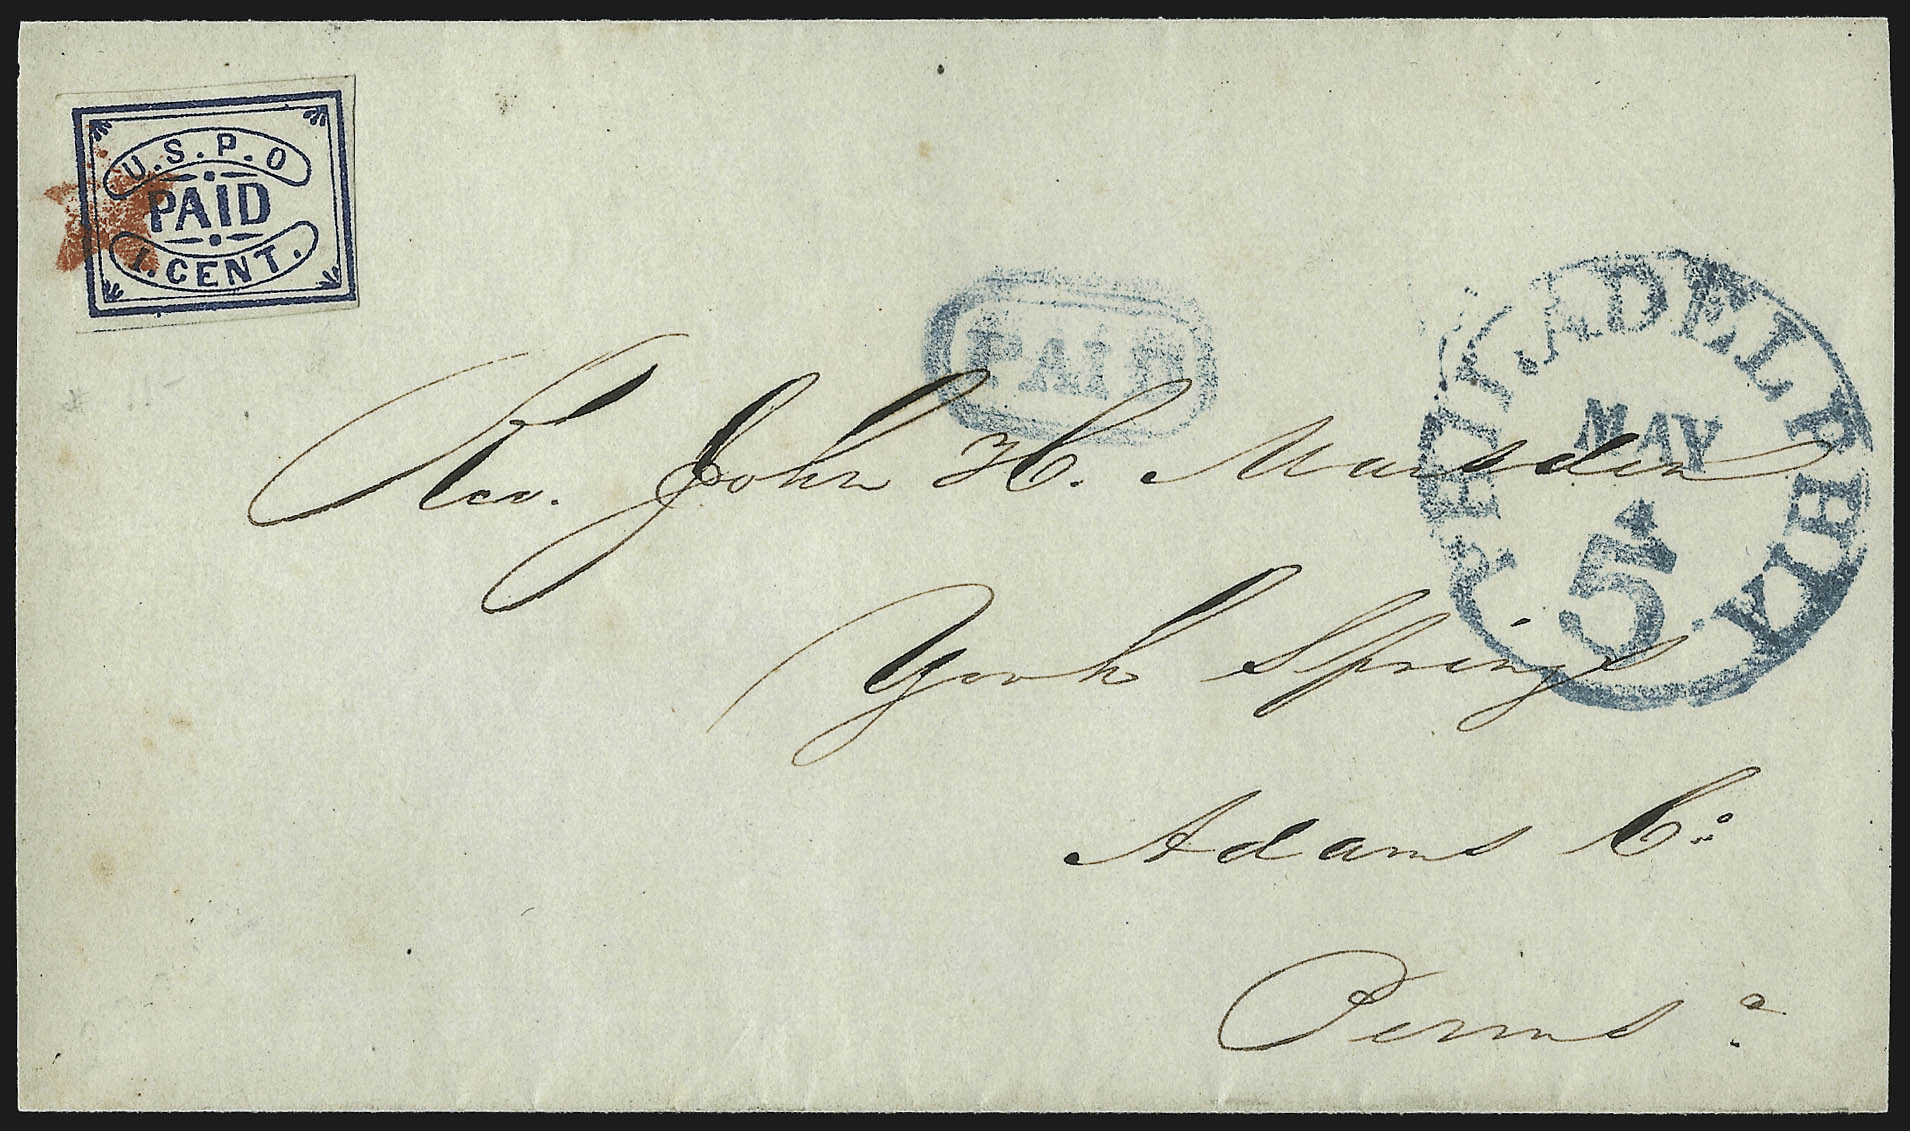 U.S.P.O
PAID
1.CENT.
PAID
PHILADELPHIA
MAY
4
5
Rev. John H. Marsden
York Springs
Adams Co
Penns a